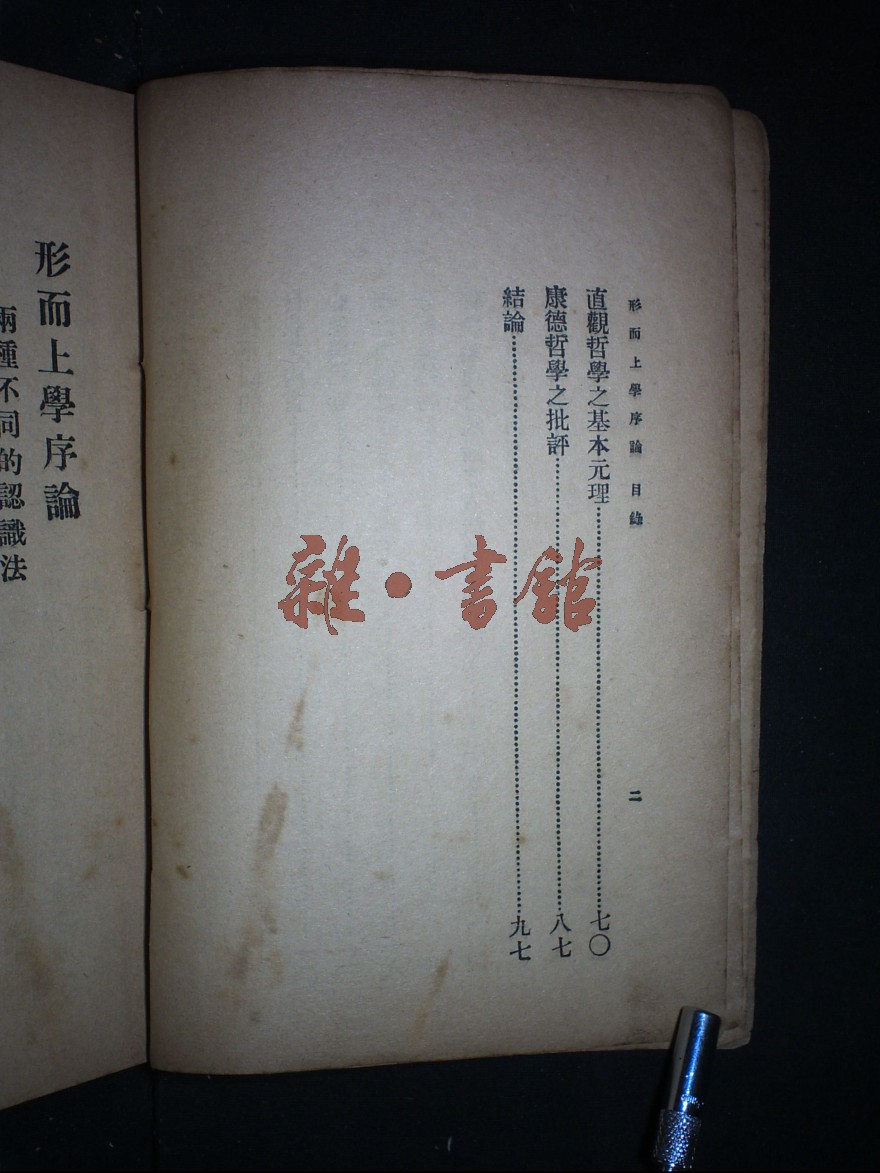 形而上學序論 目錄 二
直觀哲學之基本元理……七〇
康德哲學之批評……八七
結論……九七
雜·書館
形而上學序論
兩種不同的認識法